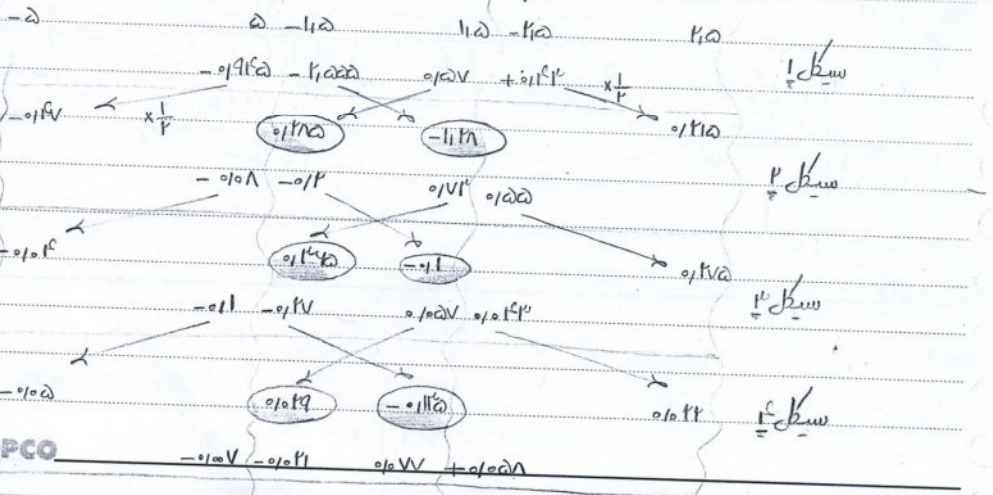 -۵ ۵ -۱٫۵ ۱٫۵ -۲٫۵ ۲٫۵
-۰٫۹۴۵ -۲٫۵۵۵ ۰٫۵۷ +۰٫۴۳ ×۱/۲ سیکل ۱
-۰٫۴۷ ×۱/۲ ۰٫۲۸۵ -۱٫۲۸ ۰٫۲۱۵
-۰٫۰۸ -۰٫۲ ۰٫۷۳ ۰٫۵۵ سیکل ۲
-۰٫۰۴ ۰٫۳۶۵ -۰٫۱ ۰٫۲۷۵
-۰٫۱ -۰٫۲۷ ۰٫۰۵۷ ۰٫۰۴۳ سیکل ۳
-۰٫۰۵ ۰٫۰۲۹ -۰٫۱۳۵ ۰٫۰۲۲ سیکل ۴
PCO
-۰٫۰۰۷ -۰٫۰۲۱ ۰٫۰۷۷ +۰٫۰۵۸